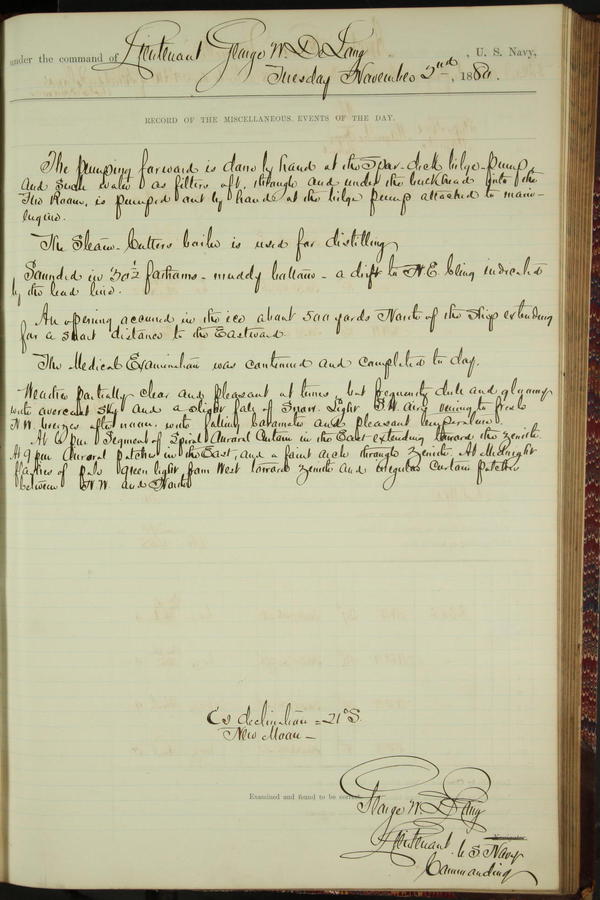 under the command of Lieutenant George W. De Long, U. S. Navy,
Tuesday November 2nd, 1880.
RECORD OF THE MISCELLANEOUS EVENTS OF THE DAY.
The pumping forward is done by hand at the Spar-deck bilge-pump,
and such water as filters aft, through and under the bulkhead into the
Fire Room, is pumped out by hand at the bilge pump attached to main-
engine.
The Steam-Cutters boiler is used for distilling
Sounded in 30½ fathoms - muddy bottom - a drift to N.E. being indicated
by the lead line.
An opening occurred in the ice about 500 yards North of the Ship extending
for a short distance to the Eastward.
The Medical Examination was continued and completed to day.
Weather partially clear and pleasant at times, but frequently dull and gloomy
with overcast sky and a slight fall of Snow. Light S.W. airs veering to fresh
N.W. breezes after noon, with falling barometer and pleasant temperature.
At 6 pm Segment of Spiral Auroral Curtain in the East extending toward the zenith.
At 9 pm Auroral patches in the East, and a faint arch through zenith. At Midnight
flashes of pale green light from West toward zenith and irregular Curtain patches
between N.W. and North
☾'s declination = 21° S.
New Moon -
Examined and found to be correct.
George W. De Long
Navigator.
Lieutenant U S Navy
Commanding